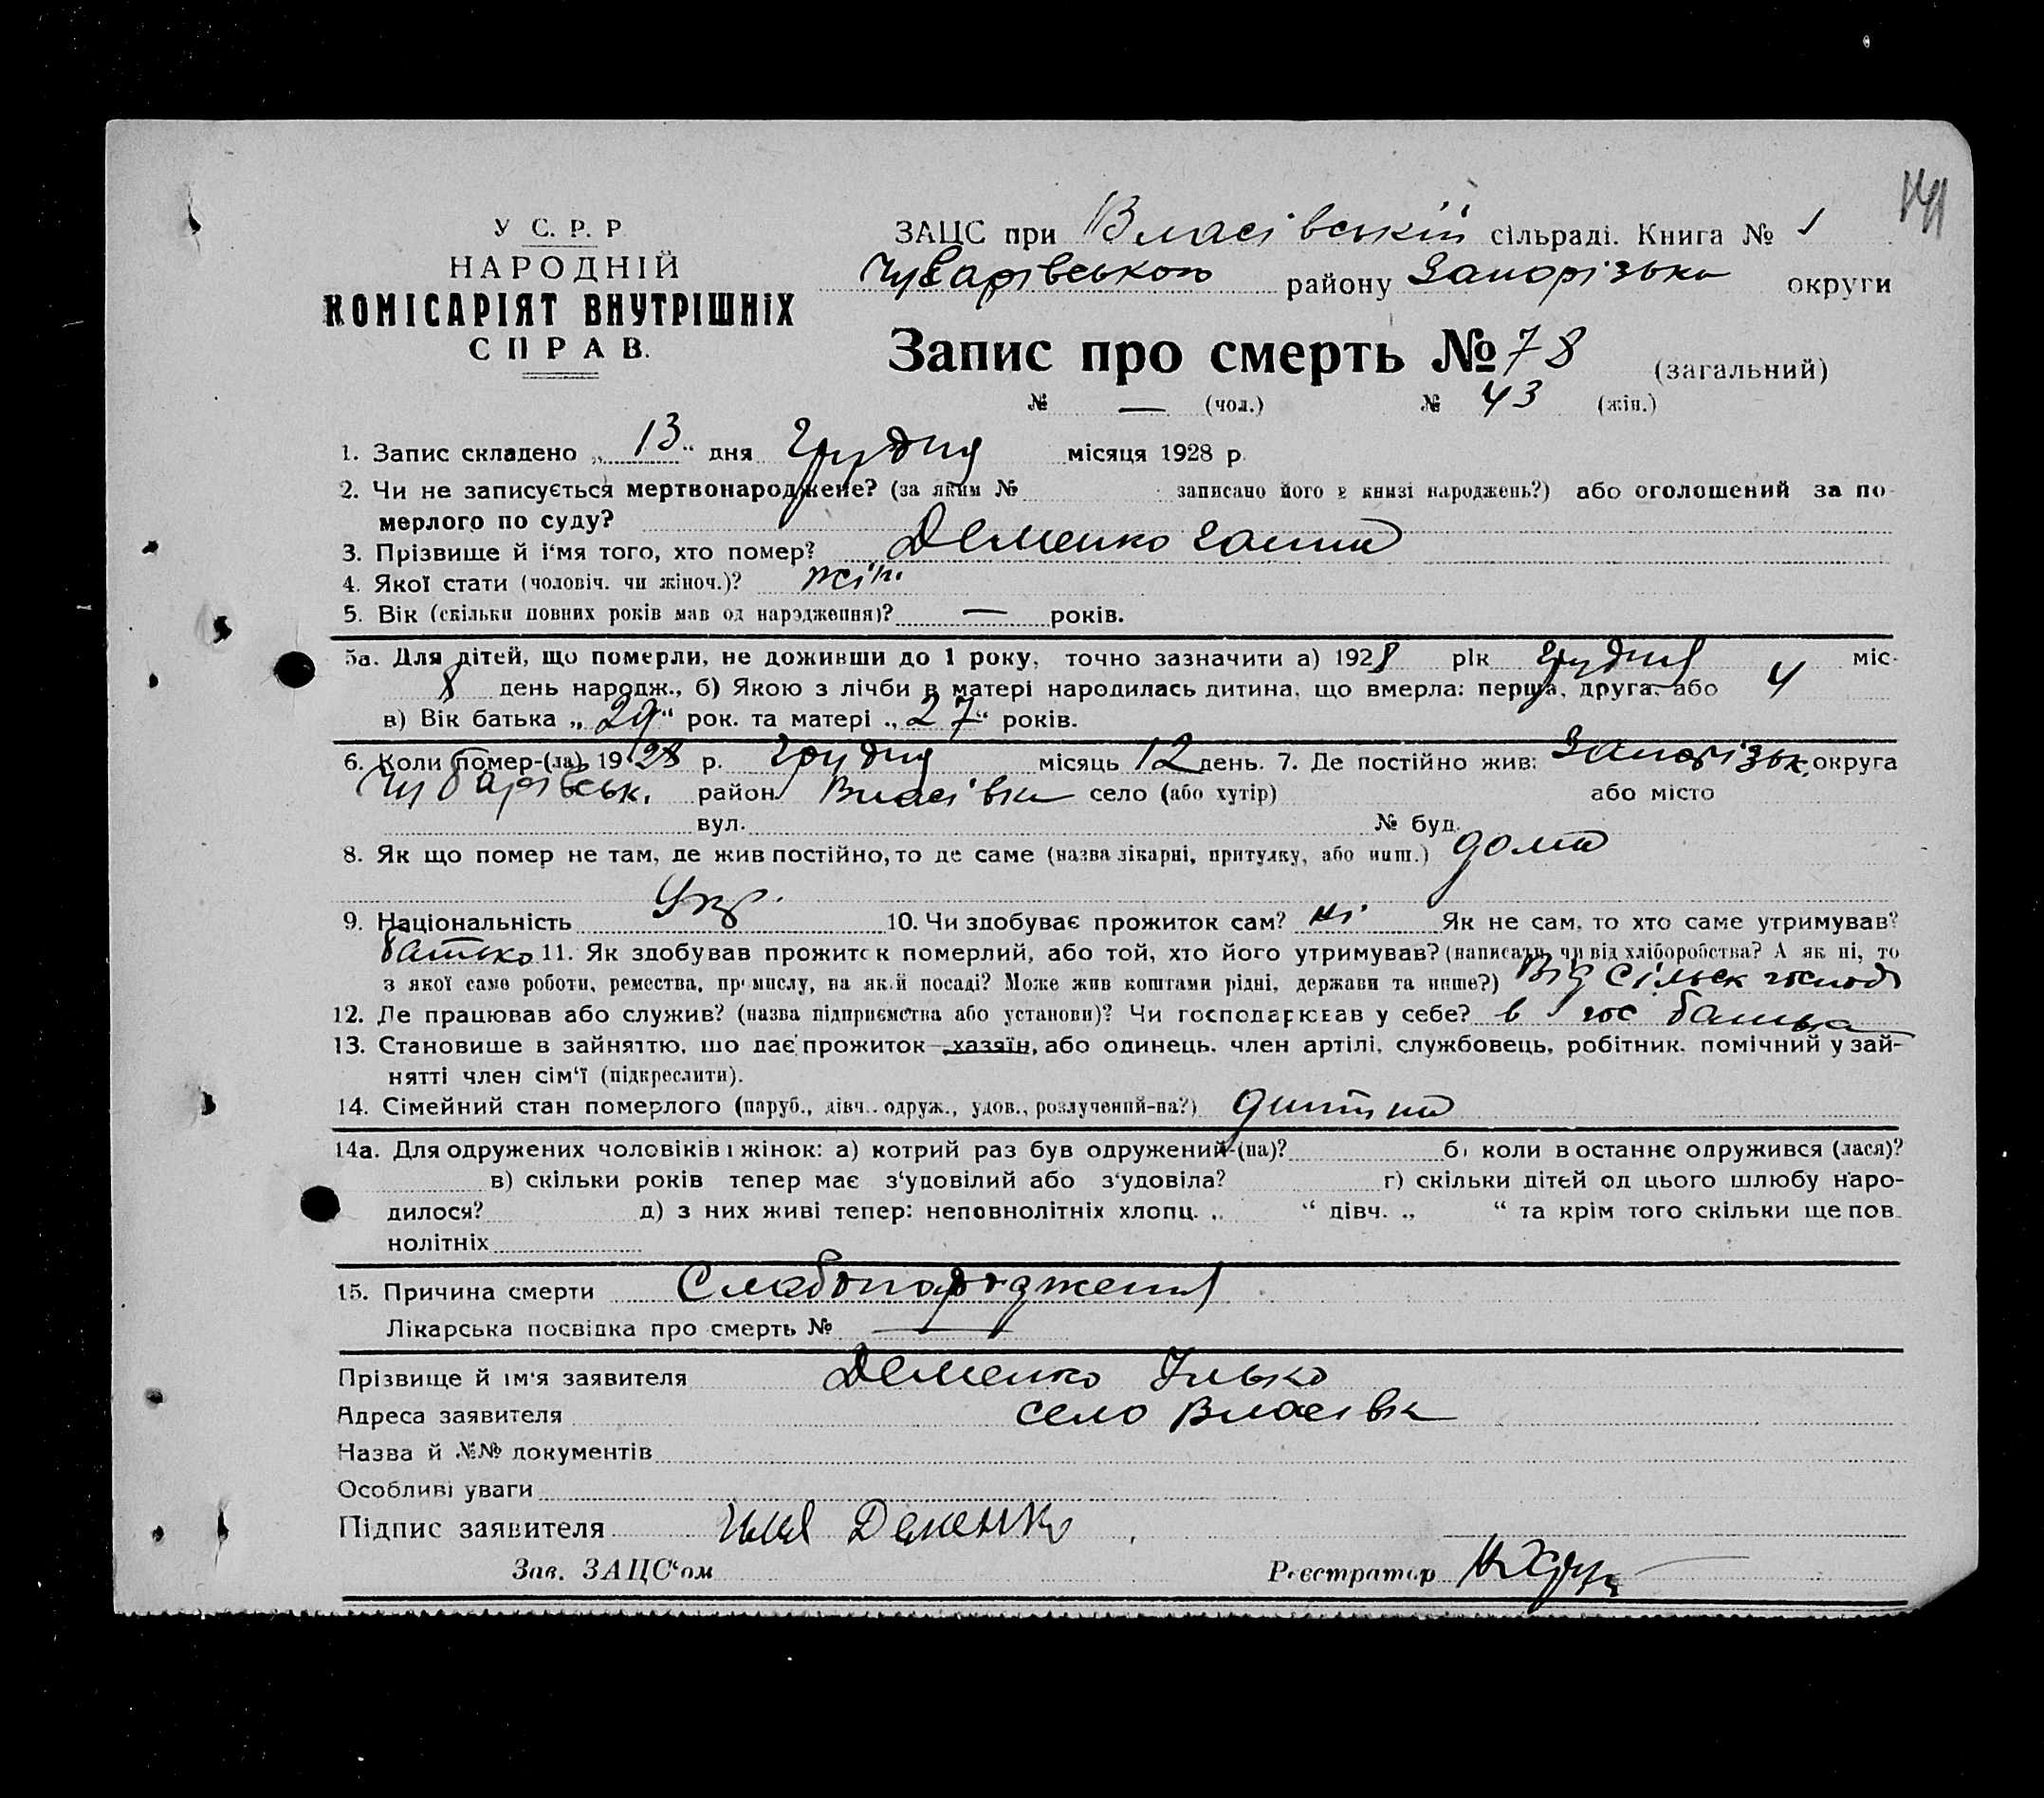 141
У С. Р. Р
НАРОДНІЙ
КОМІСАРІЯТ ВНУТРІШНІХ
СПРАВ.
ЗАЦС при Власівській сільраді. Книга № 1
Чубарівського району Запорізька округи
Запис про смерть № 78 (загальний)
№ — (чол.) № 43 (жін.)
1. Запис складено „ 13 “ дня Грудня місяця 1928 р.
2. Чи не записується мертвонароджене? (за яким № записано його в книзі народжень?) або оголошений за по-
мерлого по суду?
3. Прізвище й і‘мя того, хто помер? Деменко Ганна
4. Якої стати (чоловіч. чи жіноч.)? жін.
5. Вік (скільки повних років мав од народження)? — років.
5а. Для дітей, що померли, не доживши до 1 року, точно зазначити а) 1928 рік Грудня міс-
8 день народж., б) Якою з лічби в матері народилась дитина, що вмерла: перша, друга, або 4
в) Вік батька „ 29 “ рок. та матері „ 27 “ років.
6. Коли помер-(ла) 1928 р. Грудня місяць 12 день. 7. Де постійно жив: Запорізьк. округа
Чубарівськ. район Власівка село (або хутір) або місто
вул. № буд.
8. Як що помер не там, де жив постійно, то де саме (назва лікарні, притулку, або инш.) дома
9. Національність Укр. 10. Чи здобуває прожиток сам? ні Як не сам, то хто саме утримував?
батько 11. Як здобував прожиток померлий, або той, хто його утримував? (написати, чи від хліборобства? А як ні, то
з якої саме роботи, ремества, промислу, на якій посаді? Може жив коштами рідні, держави та инше?) Від сільск господ
12. Де працював або служив? (назва підприємства або установи)? Чи господарював у себе? в гос батька
13. Становище в зайняттю, що дає прожиток—хазяїн, або одинець, член артілі, службовець, робітник, помічний у зай-
нятті член сім‘ї (підкреслити).
14. Сімейний стан померлого (паруб., дівч., одруж., удов., розлучений-на?) дитина
14а. Для одружених чоловіків і жінок: а) котрий раз був одружений-(на)? б) коли в останнє одружився (лася)?
в) скільки років тепер має з‘удовілий або з‘удовіла? г) скільки дітей од цього шлюбу наро-
дилося? д) з них живі тепер: неповнолітніх хлопц. „ “ дівч. „ “ та крім того скільки ще пов-
нолітніх
15. Причина смерти Слабонародження
Лікарська посвідка про смерть № —
Прізвище й ім‘я заявителя Деменко Ілько
Адреса заявителя село Власівка
Назва й №№ документів
Особливі уваги
Підпис заявителя Илья Деменко
Зав. ЗАЦС‘ом Реєстратор